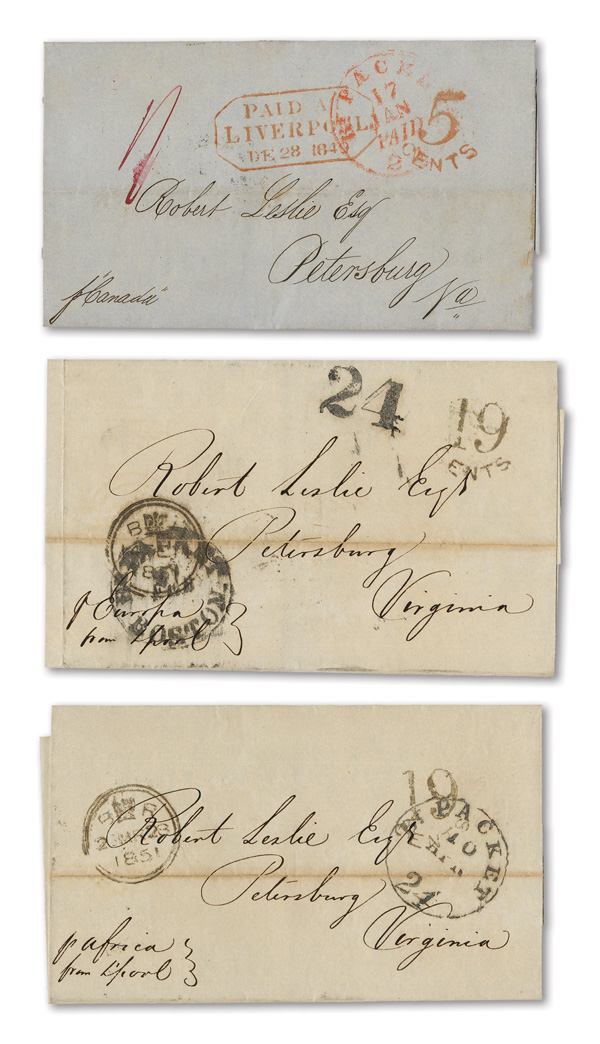 PAID A
LIVERPOOL
DE 28 1849
PACKET
17
JAN
PAID
5
CENTS
Robert Leslie Esq
Petersburg
Va
p "Canada"
24
19
CENTS
Robert Leslie Esqr
Petersburg
Virginia
p Europa
from L'pool
19
PACKET
24
1851
Robert Leslie Esqr
Petersburg
Virginia
p Africa
from L'pool